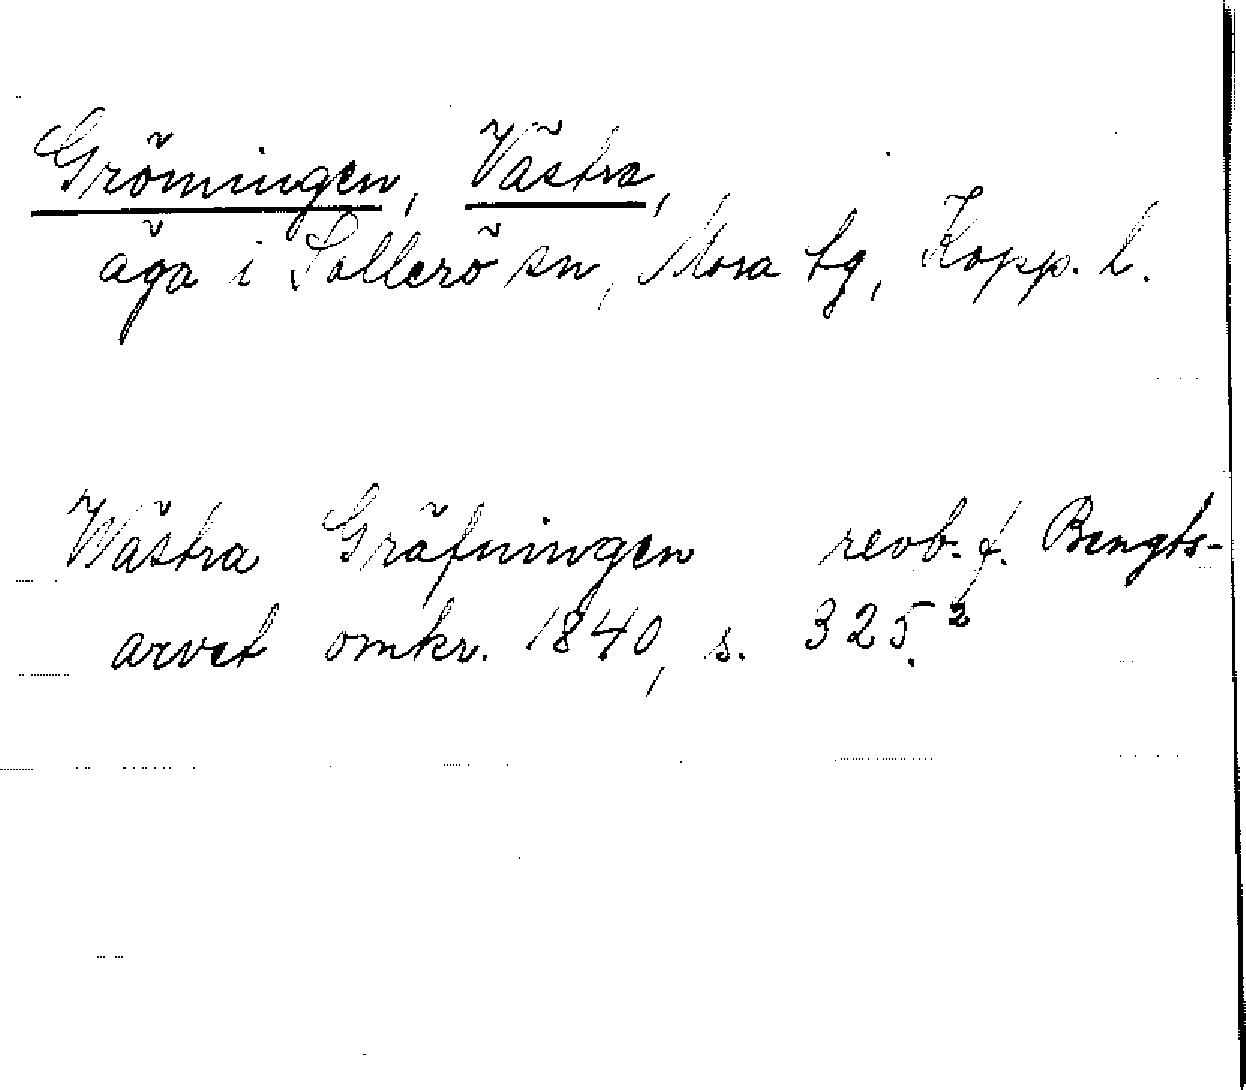 Grömningen, Västra,
äga i Sollerö sn, Mora tg, Kopp. l.
Wästra Gräfningen revb. f. Bengts-
arvet omkr. 1840, s. 325².